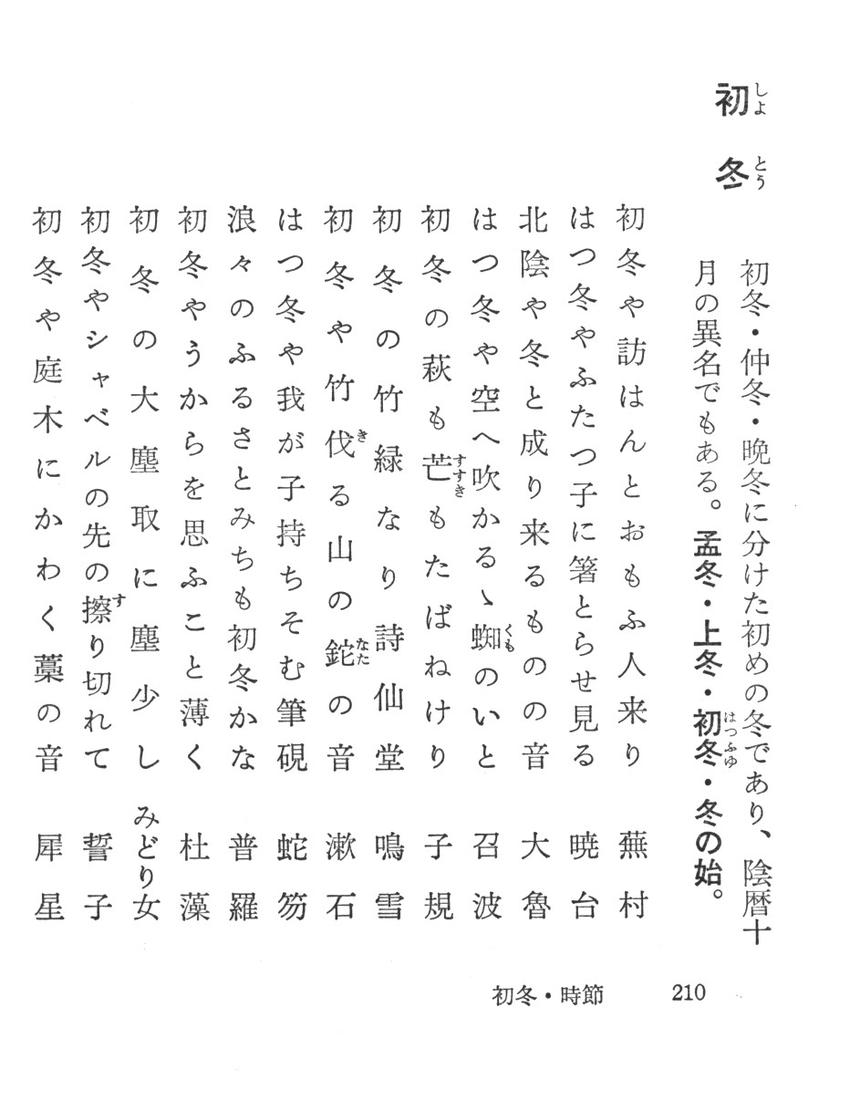 初冬
しよ とう
初冬・仲冬・晩冬に分けた初めの冬であり、陰暦十
月の異名でもある。孟冬・上冬・初冬・冬の始。
はつふゆ
初冬や訪はんとおもふ人来り 蕪村
はつ冬やふたつ子に箸とらせ見る 暁台
北陰や冬と成り来るものの音 大魯
はつ冬や空へ吹かるゝ蜘のいと 召波
くも
初冬の萩も芒もたばねけり 子規
すすき
初冬の竹緑なり詩仙堂 鳴雪
初冬や竹伐る山の鉈の音 漱石
き なた
はつ冬や我が子持ちそむ筆硯 蛇笏
浪々のふるさとみちも初冬かな 普羅
初冬やうからを思ふこと薄く 杜藻
初冬の大塵取に塵少し みどり女
初冬やシャベルの先の擦り切れて 誓子
す
初冬や庭木にかわく藁の音 犀星
初冬・時節 210